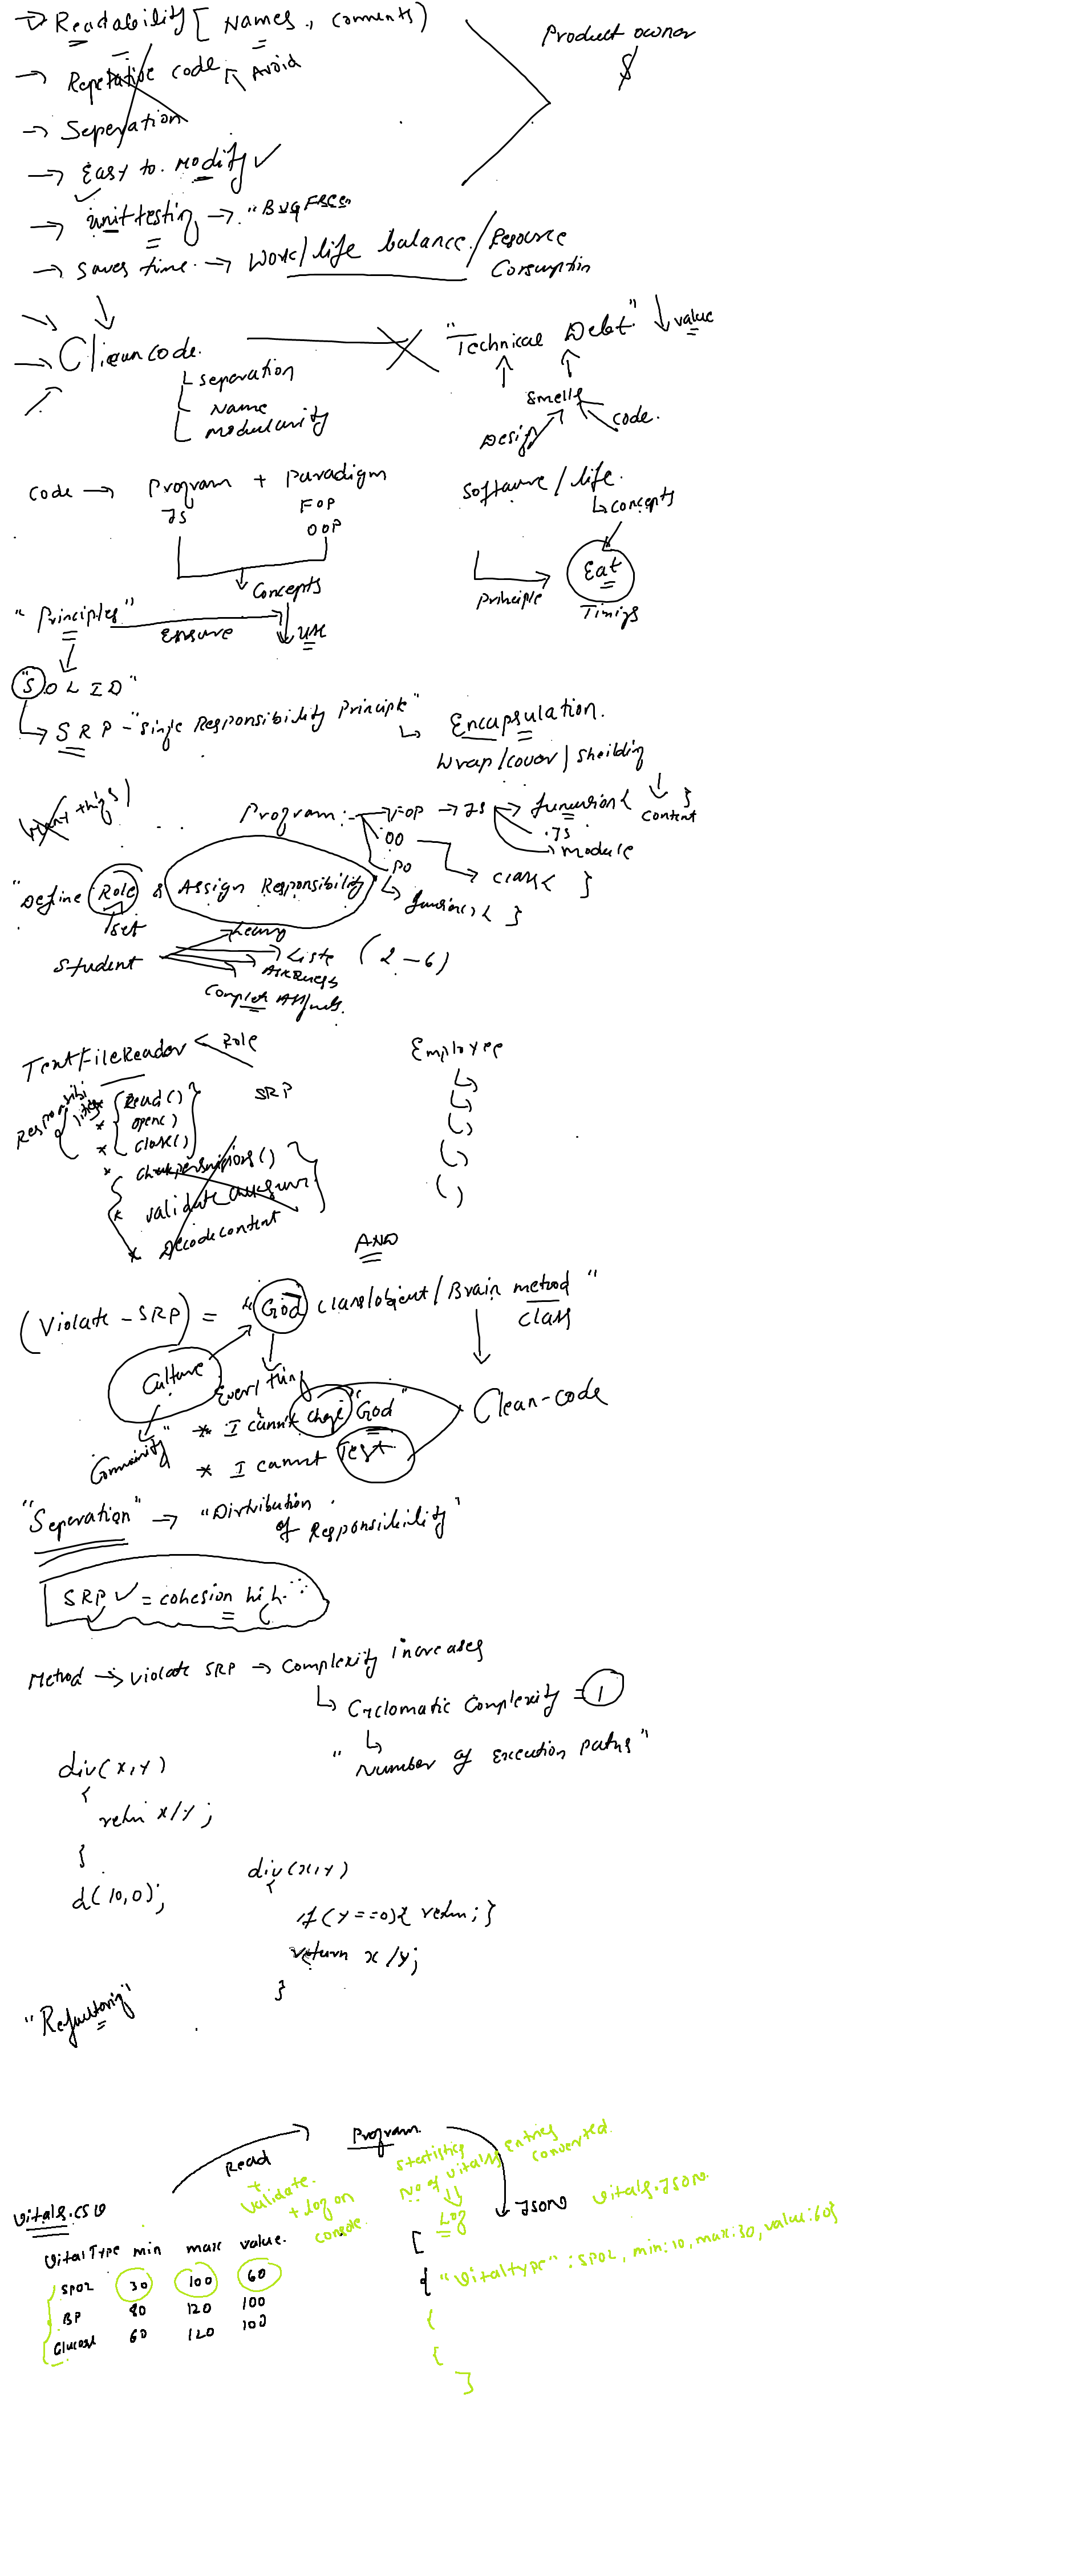 → Readability [ Names, comments)
Product owner
$
→ Repetative code ↖ Avoid
→ Seperation
→ Easy to modify ✓
→ unit testing → "Bug Free"
→ saves time → Work/life balance/Resource
Consumption
→ Clean code.
"Technical Debt" ↓ value
Separation
Name
modularity
Smells
Design
code.
Code → Program + Paradigm
JS
FOP
OOP
Concepts
Software/life.
↳ concepts
Eat
Principle
Timings
"Principles"
Ensure
use
"SOLID"
↳ SRP - "Single Responsibility Principle"
↳ Encapsulation.
Wrap/cover/sheilding
things)
Program :- FOP → JS → function { }
content
.JS
module
OO
class { }
PO
function() { }
"Define Role & Assign Responsibility"
set
Student
Liste (2-6)
Complete
TextFileReader < Role
SRP
Responsibilities
* Read()
* open()
* close()
* checkpermissions()
* validate
* Decodecontent
Employee
AND
(Violate - SRP) = "God class/object/Brain method"
class
Culture
Everything
Community
* I cannt change "God"
* I cannt Test
Clean-code
"Seperation" → "Distribution
of Responsibility"
SRP ✓ = cohesion high.
Method → violate SRP → Complexity increases
↳ Cyclomatic Complexity = 1
↳
"Number of execution paths"
div(x,y)
{
retun x/y;
}
d(10,0);
div(x,y)
{
if(y==0){ retun; }
return x/y;
}
"Refactoring"
Program
Read
+
Validate.
+ Log on
console.
Statistics
No of vitals entries
converted.
Log
vitals.csv
JSON
vitals.JSON
VitalType min max value.
SPO2 30 100 60
BP 80 120 100
Glucose 60 120 100
[
{ "Vitaltype" : SPO2, min:10, max:30, value:60}
{
{
]